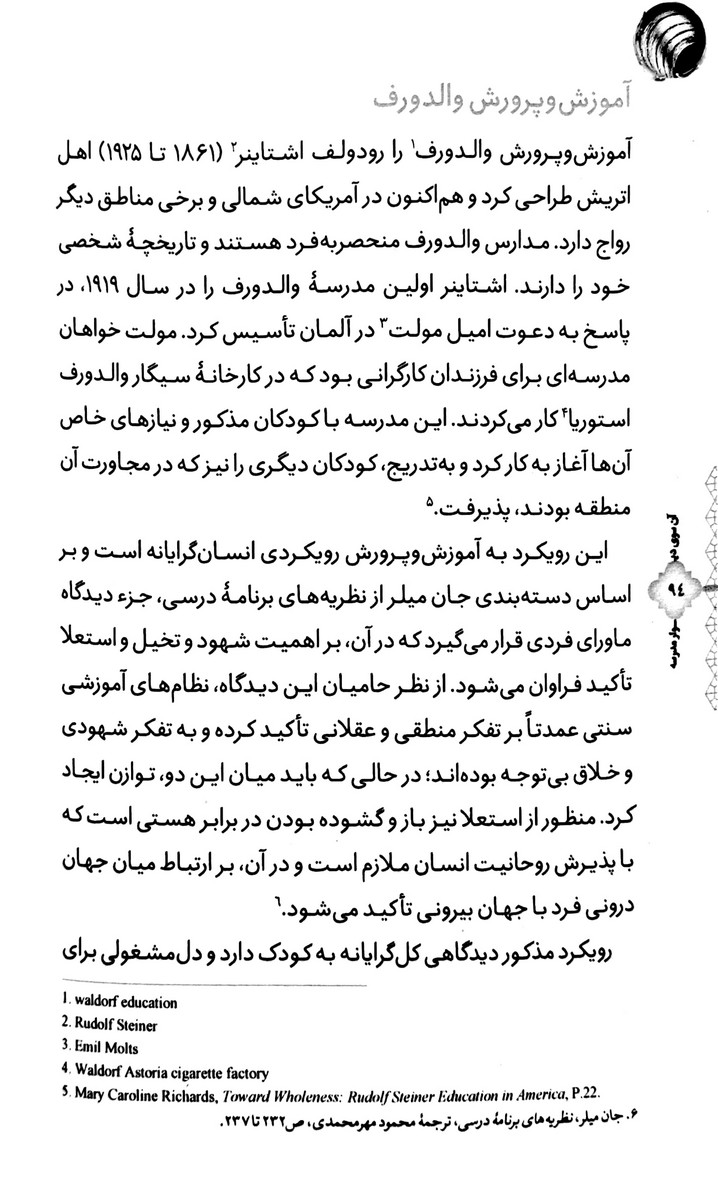 آموزش‌وپرورش والدورف
آموزش‌وپرورش والدورف۱ را رودولف اشتاینر۲ (۱۸۶۱ تا ۱۹۲۵) اهل
اتریش طراحی کرد و هم‌اکنون در آمریکای شمالی و برخی مناطق دیگر
رواج دارد. مدارس والدورف منحصربه‌فرد هستند و تاریخچهٔ شخصی
خود را دارند. اشتاینر اولین مدرسهٔ والدورف را در سال ۱۹۱۹، در
پاسخ به دعوت امیل مولت۳ در آلمان تأسیس کرد. مولت خواهان
مدرسه‌ای برای فرزندان کارگرانی بود که در کارخانهٔ سیگار والدورف
استوریا۴ کار می‌کردند. این مدرسه با کودکان مذکور و نیازهای خاص
آن‌ها آغاز به کار کرد و به‌تدریج، کودکان دیگری را نیز که در مجاورت آن
منطقه بودند، پذیرفت.۵
این رویکرد به آموزش‌وپرورش رویکردی انسان‌گرایانه است و بر
اساس دسته‌بندی جان میلر از نظریه‌های برنامهٔ درسی، جزء دیدگاه
ماورای فردی قرار می‌گیرد که در آن، بر اهمیت شهود و تخیل و استعلا
تأکید فراوان می‌شود. از نظر حامیان این دیدگاه، نظام‌های آموزشی
سنتی عمدتاً بر تفکر منطقی و عقلانی تأکید کرده و به تفکر شهودی
و خلاق بی‌توجه بوده‌اند؛ در حالی که باید میان این دو، توازن ایجاد
کرد. منظور از استعلا نیز باز و گشوده بودن در برابر هستی است که
با پذیرش روحانیت انسان ملازم است و در آن، بر ارتباط میان جهان
درونی فرد با جهان بیرونی تأکید می‌شود.۶
رویکرد مذکور دیدگاهی کل‌گرایانه به کودک دارد و دل‌مشغولی برای
1. waldorf education
2. Rudolf Steiner
3. Emil Molts
4. Waldorf Astoria cigarette factory
5. Mary Caroline Richards, Toward Wholeness: Rudolf Steiner Education in America, P.22.
۶. جان میلر، نظریه‌های برنامهٔ درسی، ترجمهٔ محمود مهرمحمدی، ص۲۳۲ تا ۲۳۷.
آن سوی
۹۴
مدرسه